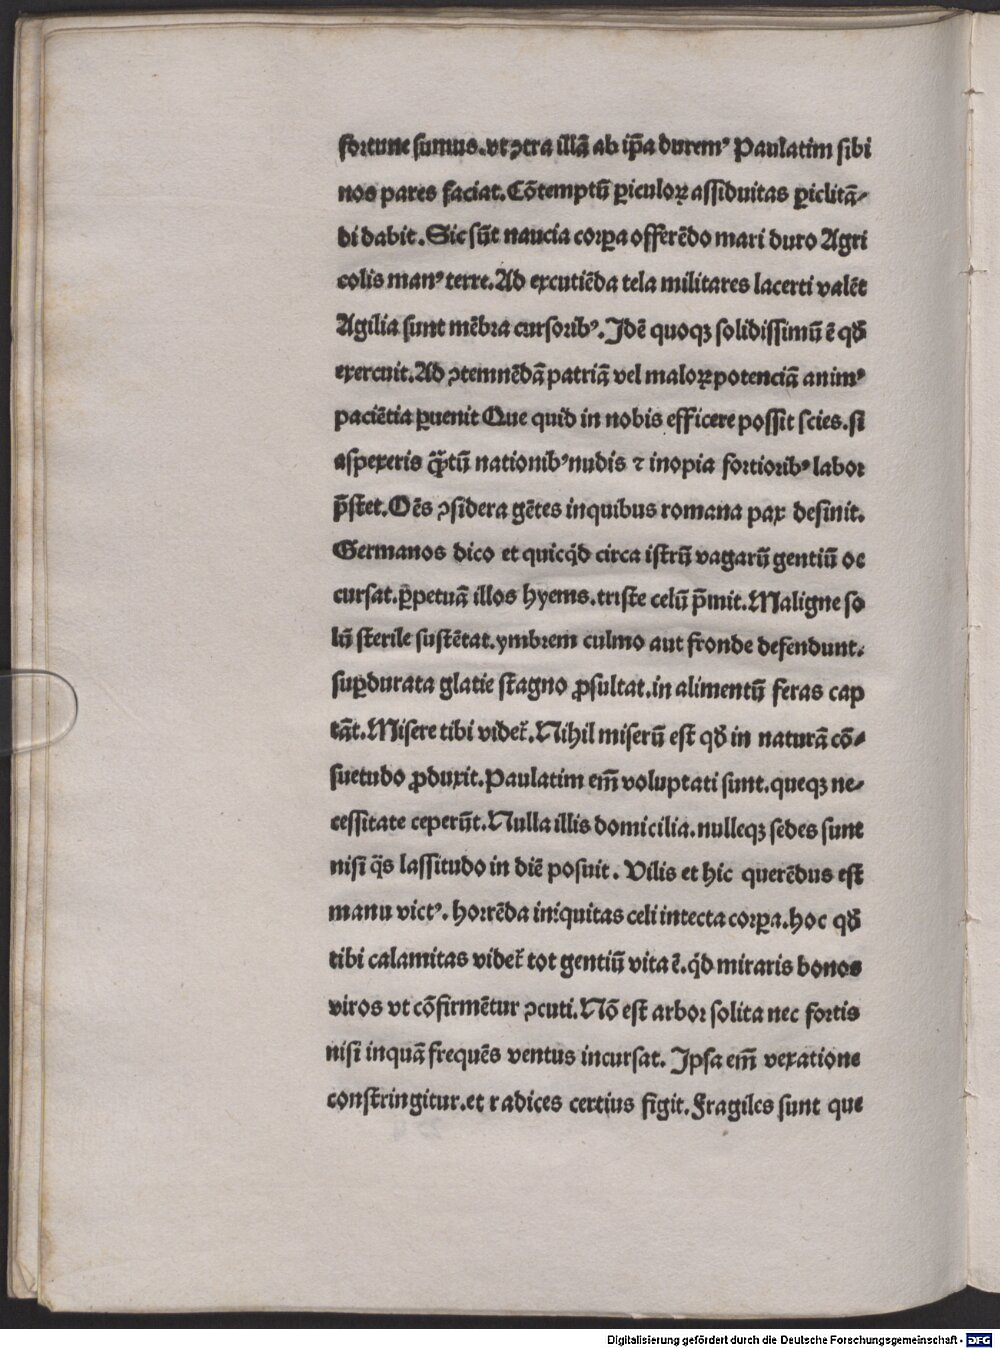 fortune sumus.vt ꝯtra illā ab ip̄a durem⁹ Paulatim sibi
nos pares faciat.Cōtemptū ꝑiculoꝝ assiduitas ꝑiclitā⸗
di dabit.Sic sūt naucia corꝑa offerēdo mari duro Agri
colis man⁹ terre.Ad excutiēda tela militares lacerti valēt
Agilia sunt mēbra cursorib⁹.Idē quoqꝫ solidissimū ē qď
exercuit.Ad ꝯtemnēdā patriā vel maloꝝ potenciā anim⁹
paciētia ꝑuenit Que quid in nobis efficere possit scies.si
aspexeris q̄tū nationib⁹ nudis ⁊ inopia fortiorib⁹ labor
p̄stet.Oēs ꝯsidera gētes inquibus romana pax desinit.
Germanos dico et quicq̇d circa istrū vagarū gentiū oc
cursat.ꝑpetuā illos hyems.triste celū p̄mit.Maligne so
lū sterile sustētat.ymbrem culmo aut fronde defendunt.
suꝑdurata glatie stagno ꝓsultat.in alimentū feras cap
tāt.Misere tibi videt᷑.Nihil miserū est qď in naturā cō⸗
suetudo ꝓduxit.Paulatim em̄ voluptati sunt.queqꝫ ne⸗
cessitate ceperūt.Nulla illis domicilia.nulleqꝫ sedes sunt
nisi q̄s lassitudo in diē posuit. Vilis et hic querēdus est
manu vict⁹.horrēda iniquitas celi intecta corꝑa.hoc qď
tibi calamitas videt᷑ tot gentiū vita ē.q̇d miraris bonos
viros vt cōfirmētur ꝯcuti.Nō est arbor solita nec fortis
nisi inquā frequēs ventus incursat. Ipsa em̄ vexatione
constringitur.et radices certius figit.Fragiles sunt que
Digitalisierung gefördert durch die Deutsche Forschungsgemeinschaft - DFG